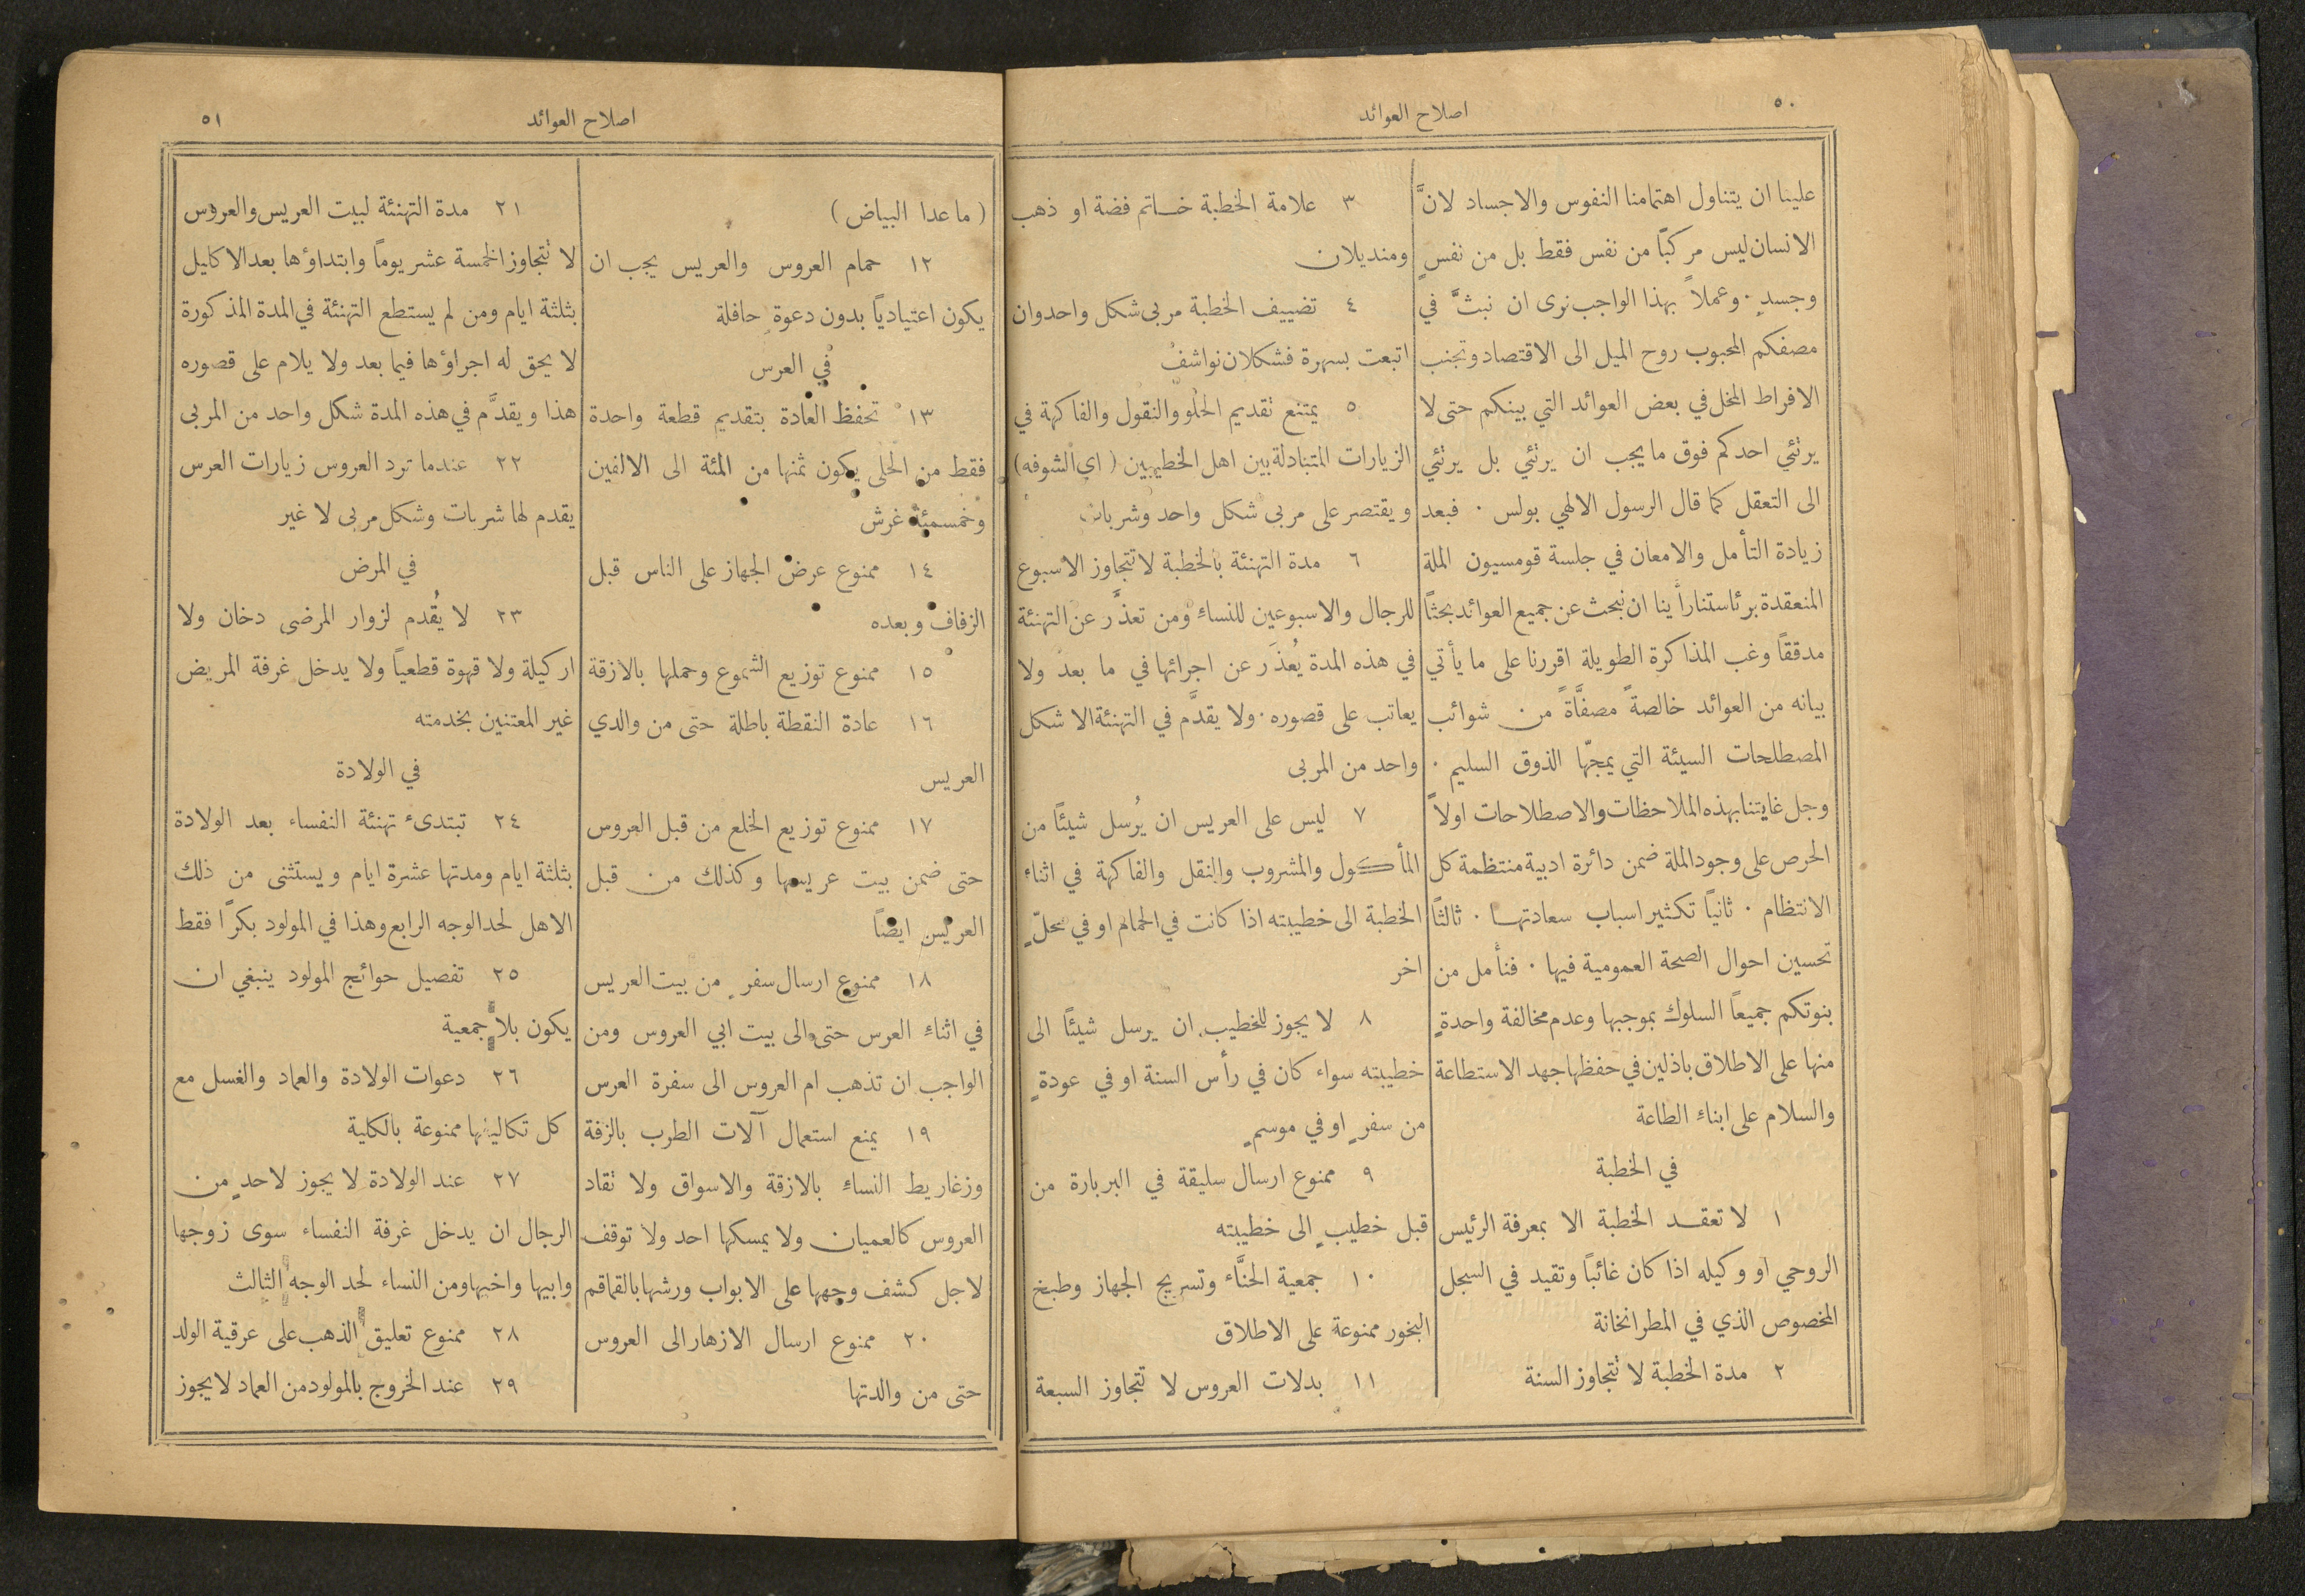 ٥٠
اصلاح العوائد
علينا ان يتناول اهتمامنا النفوس والاجساد لانَّ
الانسان ليس مركبًا من نفس فقط بل من نفسٍ
وجسدٍ · وعملاً بهذا الواجب نرى ان نبثَّ في
مصفكم المحبوب روح الميل الى الاقتصاد وتجنب
الافراط المخل في بعض العوائد التي بينكم حتى لا
يرتئي احدكم فوق ما يجب ان يرتئي بل يرتئي
الى التعقل كما قال الرسول الالهي بولس · فبعد
زيادة التأمل والامعان في جلسة قومسيون الملة
المنعقدة برئاستنا رأينا ان نبحث عن جميع العوائد بحثًا
مدققًا وغب المذاكرة الطويلة اقررنا على ما يأتي
بيانه من العوائد خالصةً مصفَّاةً من شوائب
المصطلحات السيئة التي يمجّها الذوق السليم ·
وجل غايتنا بهذه الملاحظات والاصطلاحات اولاً
الحرص على وجود الملة ضمن دائرة ادبية منتظمة كل
الانتظام · ثانيًا تكثير اسباب سعادتها · ثالثًا
تحسين احوال الصحة العمومية فيها · فنأمل من
بنوتكم جميعًا السلوك بموجبها وعدم مخالفة واحدةٍ
منها على الاطلاق باذلين في حفظها جهد الاستطاعة
والسلام على ابناءِ الطاعة
في الخطبة
١ لا تعقد الخطبة الا بمعرفة الرئيس
الروحي او وكيله اذا كان غائبًا وتقيد في السجل
المخصوص الذي في المطرانخانة
٢ مدة الخطبة لا تتجاوز السنة
٣ علامة الخطبة خاتم فضة او ذهب
ومنديلان
٤ تضييف الخطبة مربى شكل واحد وان
اتبعت بسهرة فشكلان نواشف
٥ يمتنع تقديم الحلو والنقول والفاكهة في
الزيارات المتبادلة بين اهل الخطيبين (اي الشوفه)
ويقتصر على مربى شكل واحد وشربات
٦ مدة التهنئة بالخطبة لا تتجاوز الاسبوع
للرجال والاسبوعين للنساءِ ومن تعذَّر عن التهنئة
في هذه المدة يُعذَر عن اجرائها في ما بعد ولا
يعاتب على قصوره · ولا يقدَّم في التهنئة الا شكل
واحد من المربى
٧ ليس على العريس ان يُرسل شيئًا من
المأكول والمشروب والنقل والفاكهة في اثناء
الخطبة الى خطيبته اذا كانت في الحمام او في محلّ
اخر
٨ لا يجوز للخطيب ان يرسل شيئًا الى
خطيبته سواء كان في رأس السنة او في عودةٍ
من سفرٍ او في موسمٍ
٩ ممنوع ارسال سليقة في البربارة من
قبل خطيبٍ الى خطيبته
١٠ جمعية الحنَّاء وتسريج الجهاز وطبخ
البخور ممنوعة على الاطلاق
١١ بدلات العروس لا تتجاوز السبعة
اصلاح العوائد
٥١
(ما عدا البياض)
١٢ حمام العروس والعريس يجب ان
يكون اعتياديًا بدون دعوةٍ حافلة
في العرس
١٣ تحفظ العادة بتقديم قطعة واحدة
فقط من الحلى يكون ثمنها من المئة الى الالفين
وخمسمئة غرش
١٤ ممنوع عرض الجهاز على الناس قبل
الزفاف وبعده
١٥ ممنوع توزيع الشموع وحملها بالازقة
١٦ عادة النقطة باطلة حتى من والدي
العريس
١٧ ممنوع توزيع الخلع من قبل العروس
حتى ضمن بيت عريسها وكذلك من قبل
العريس ايضًا
١٨ ممنوع ارسال سفرٍ من بيت العريس
في اثناءِ العرس حتى والى بيت ابي العروس ومن
الواجب ان تذهب ام العروس الى سفرة العرس
١٩ يمنع استعمال آلات الطرب بالزفة
وزغاريط النساءِ بالازقة والاسواق ولا تقاد
العروس كالعميان ولا يمسكها احد ولا توقف
لاجل كشف وجهها على الابواب ورشها بالقماقم
٢٠ ممنوع ارسال الازهار الى العروس
حتى من والدتها
٢١ مدة التهنئة لبيت العريس والعروس
لا تتجاوز الخمسة عشر يومًا وابتداؤها بعد الاكليل
بثلثة ايام ومن لم يستطع التهنئة في المدة المذكورة
لا يحق له اجراؤها فيما بعد ولا يلام على قصوره
هذا ويقدَّم في هذه المدة شكل واحد من المربى
٢٢ عندما ترد العروس زيارات العرس
يقدم لها شربات وشكل مربى لا غير
في المرض
٢٣ لا يُقدم لزوار المرضى دخان ولا
اركيلة ولا قهوة قطعيًا ولا يدخل غرفة المريض
غير المعتنين بخدمته
في الولادة
٢٤ تبتدئ تهنئة النفساء بعد الولادة
بثلثة ايام ومدتها عشرة ايام ويستثنى من ذلك
الاهل لحد الوجه الرابع وهذا في المولود بكرًا فقط
٢٥ تفصيل حوائج المولود ينبغي ان
يكون بلا جمعية
٢٦ دعوات الولادة والعماد والغسل مع
كل تكاليفها ممنوعة بالكلية
٢٧ عند الولادة لا يجوز لاحدٍ من
الرجال ان يدخل غرفة النفساء سوى زوجها
وابيها واخيها ومن النساء لحد الوجه الثالث
٢٨ ممنوع تعليق الذهب على عرقية الولد
٢٩ عند الخروج بالمولود من العماد لا يجوز